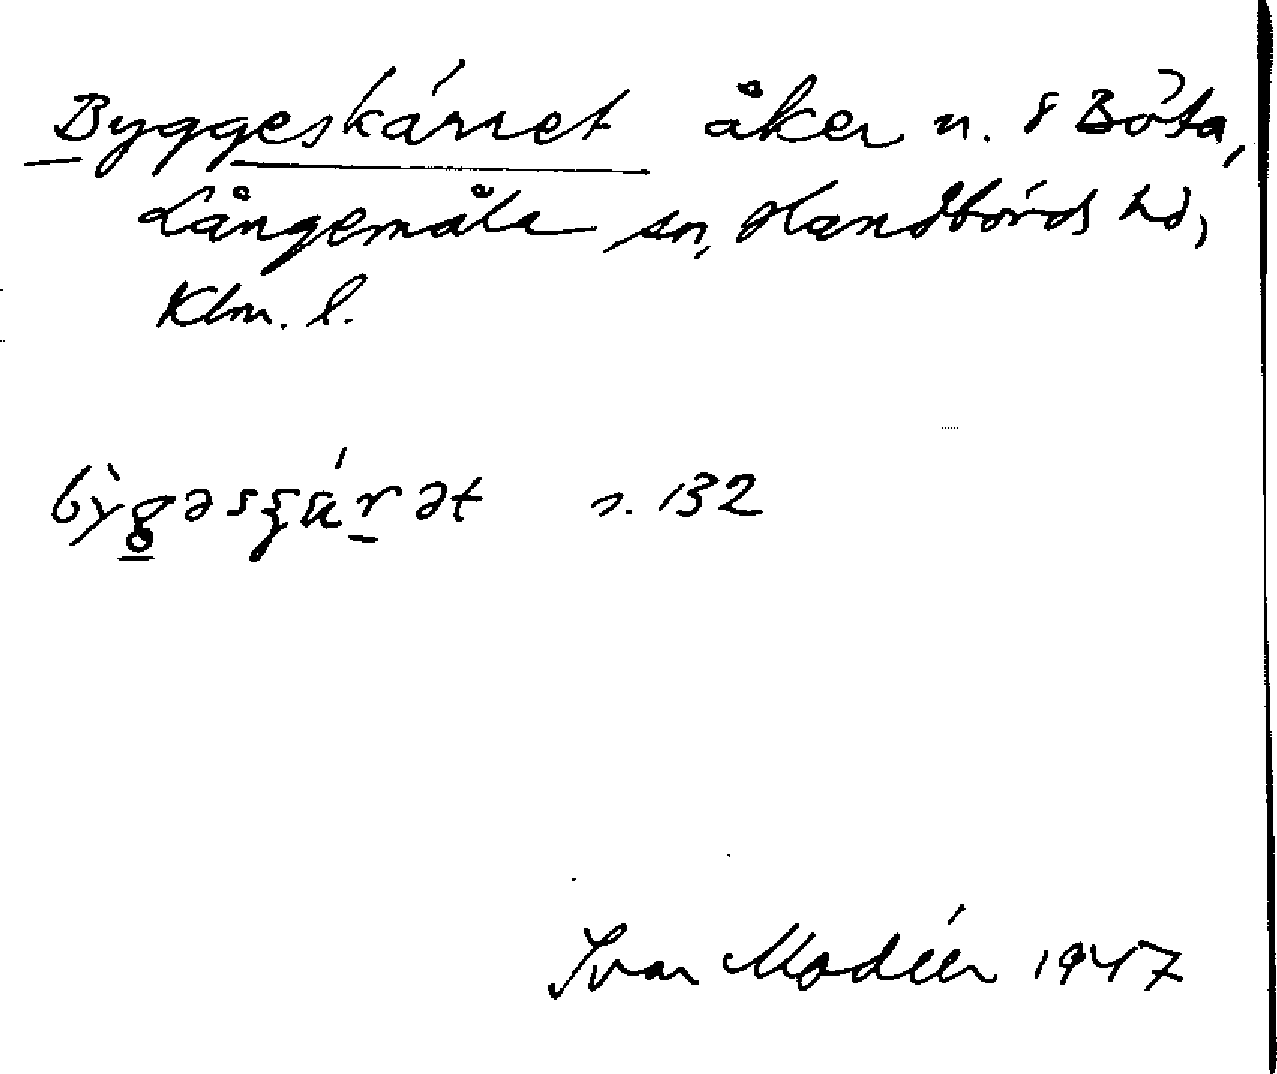 Byggeskärret åker n. 8 Böta,
Långemåla sn, Handbörds hd,
Klm. l.
s. 132
Ivar Modéer 1947